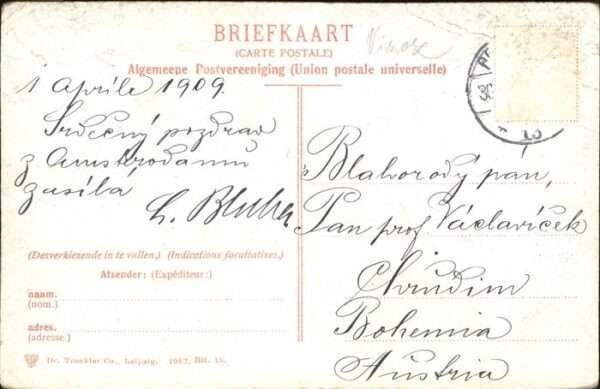 BRIEFKAART
(CARTE POSTALE)
Algemeene Postvereeniging (Union postale universelle)
1 Aprile 1909.
Srdečný pozdrav
z Amstrodamu
zasílá
Blahorodý pán,
Pan prof Václavíček
Chrudim
Bohemia
Austria
(Desverkiezende in te vullen.) (Indications facultatives:)
Afsender: (Expéditeur:)
naam.
(nom.)
adres.
(adresse.)
Dr. Trenkler Co., Leipzig. 1907, Ntt. 15.